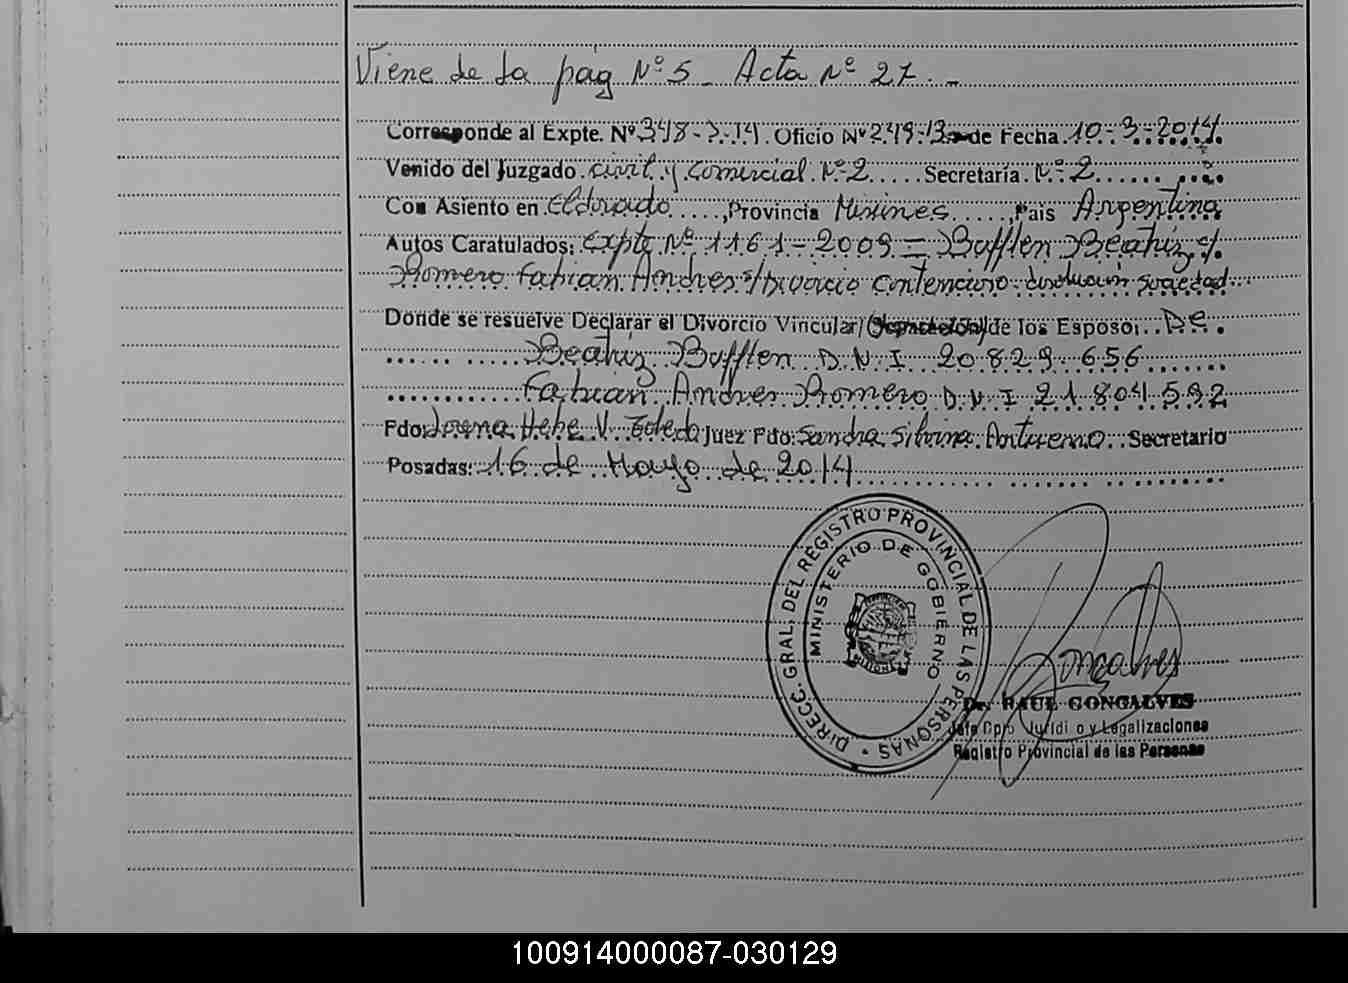 Viene de la pág Nº 5 - Acta Nº 27. -
Corresponde al Expte. Nº 348-7-14. Oficio Nº 249-13 de Fecha 10-3-2014
Venido del Juzgado civil y Comercial Nº 2 Secretaría Nº 2
Con Asiento en Eldorado, Provincia Misiones, País Argentina
Autos Caratulados: Expte Nº 1161-2009 = Bufflen Beatriz c/
Romero Fabian Andres s/Divorcio Contencioso disolución Sociedad
Donde se resuelve Declarar el Divorcio Vincular/(Separación) de los Esposos DE.
Beatriz Bufflen D.N.I 20.829.656
Fabian Andres Romero D.N.I 21.804.592
Fdo: Lorena Hebe V. Toledo Juez Fdo: Sandra Silvina Secretario
Posadas: 16 de Mayo de 2014
DIRECC. GRAL. DEL REGISTRO PROVINCIAL DE LAS PERSONAS
MINISTERIO DE GOBIERNO
MISIONES
Goncalves
Dr. RAUL GONCALVES
Jefe Dpto Jurídico y Legalizaciones
Registro Provincial de las Personas
100914000087-030129